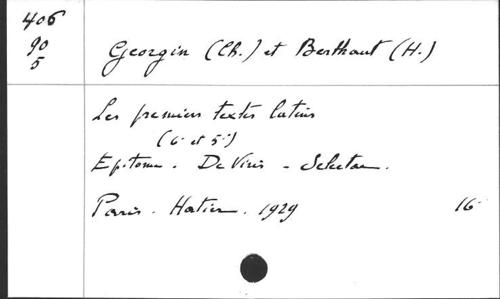 406
90
5
Georgin (Ch.) et Berthaut (H.)
Les premiers textes latins
(6e et 5e)
Epitome - De Viris - Selectae.
Paris - Hatier - 1929 16